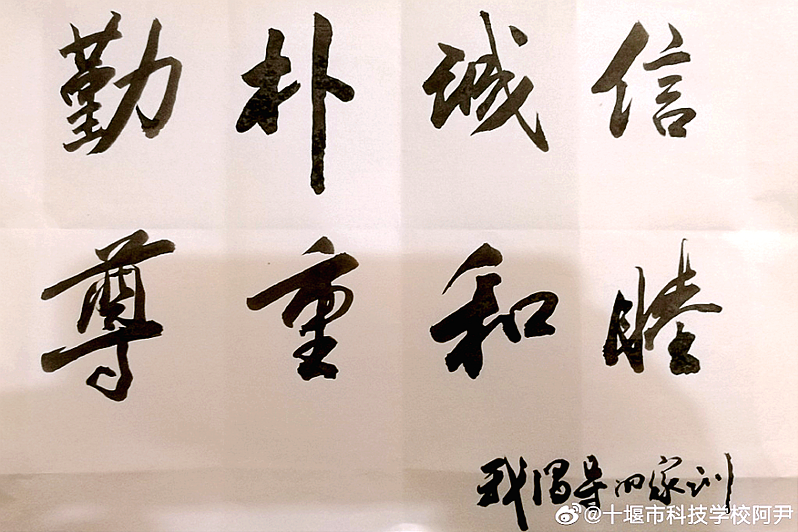 勤朴诚信
尊重和睦
我倡导的家训
@十堰市科技学校阿尹